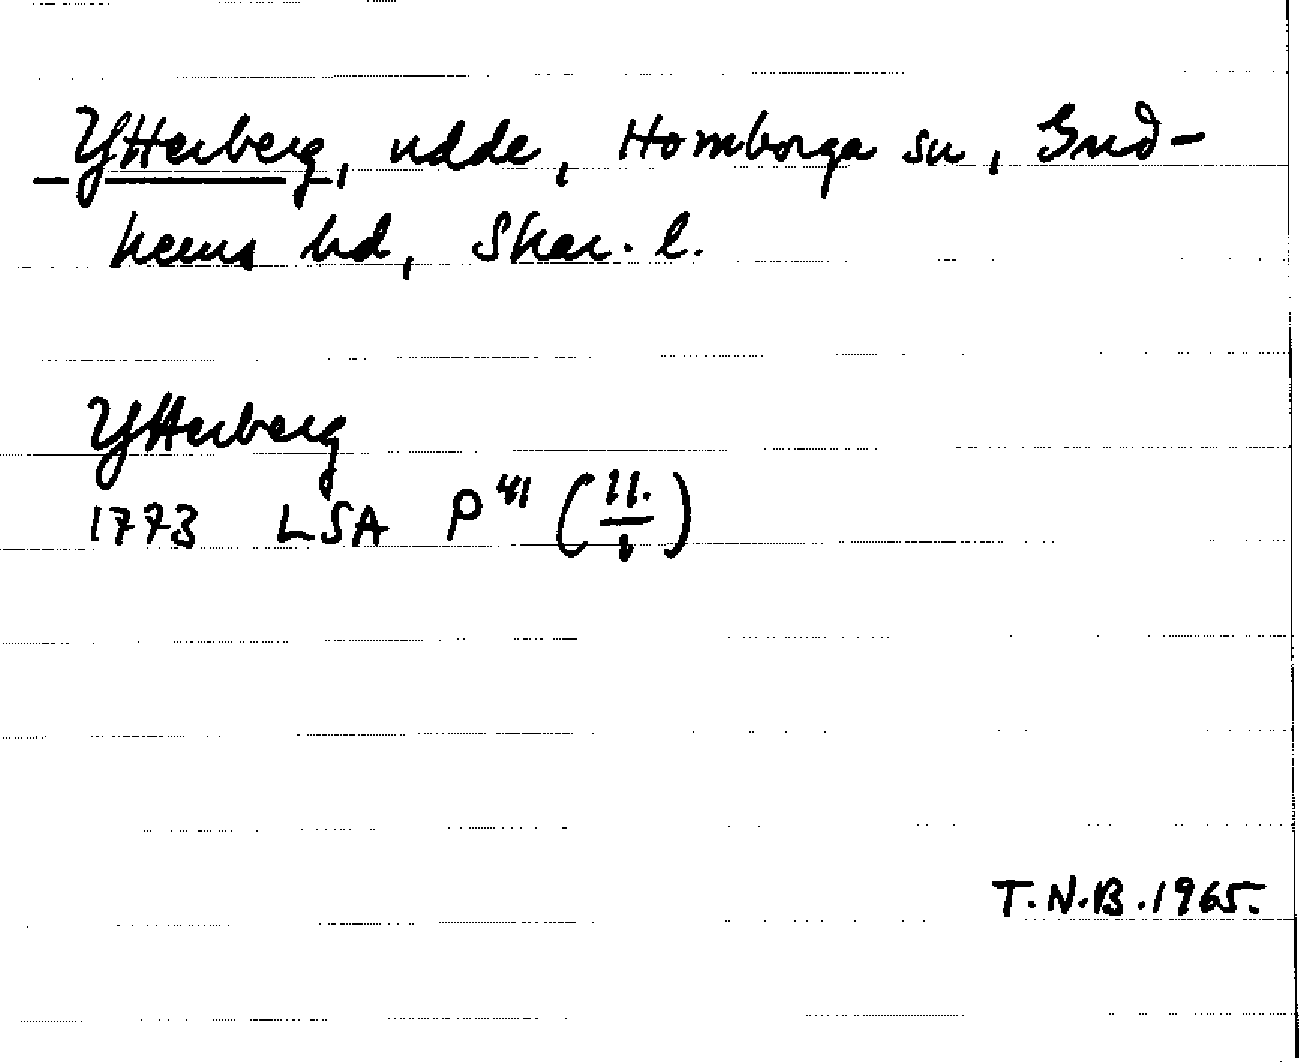 Ytterberg, udde, Homborga sn, Gud-
hems hd, Skar. l.
Ytterberg
1773 LSA P 41 (11./1)
T.N.B. 1965.